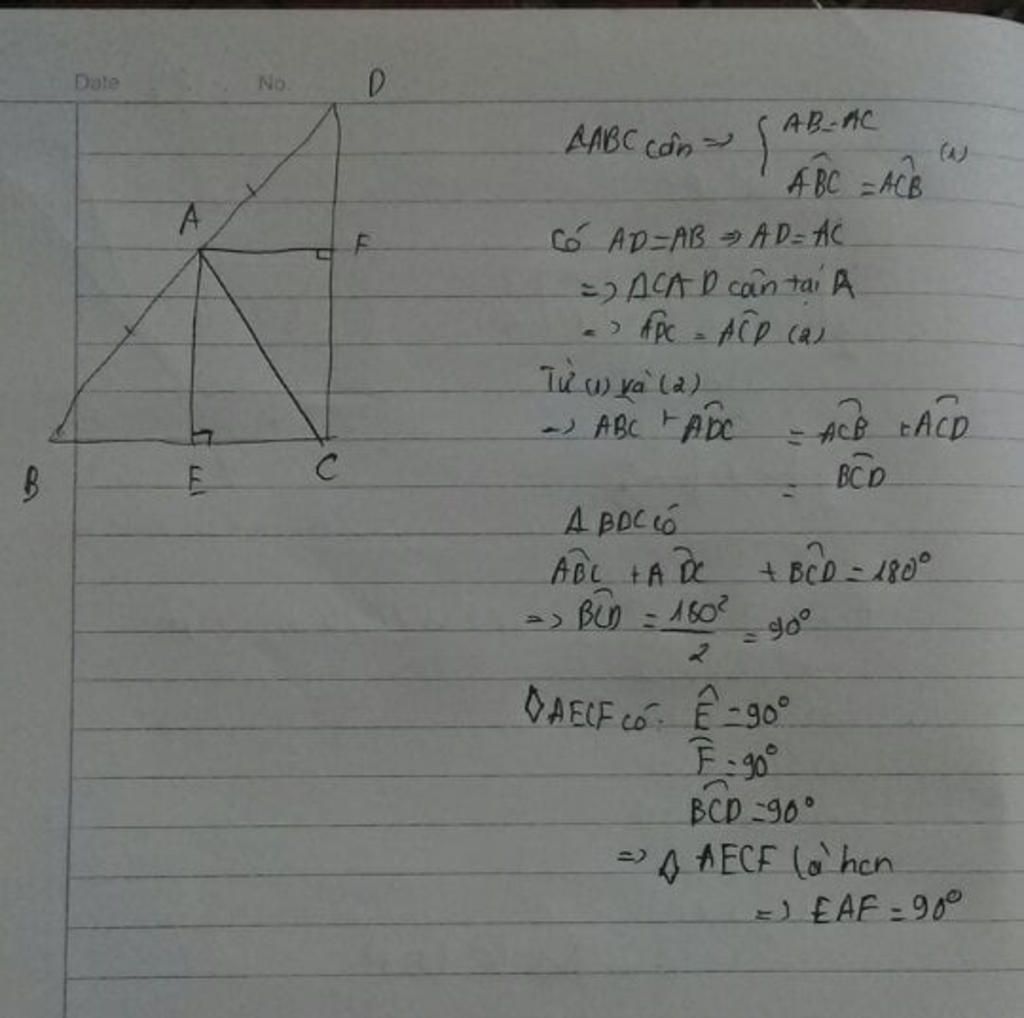 Date No.
D
A
F
B
E
C
ΔABC cân => { AB=AC
ABC = ACB (1)
Có AD=AB => AD=AC
=> ΔCAD cân tại A
=> ADC = ACD (2)
Từ (1) và (2)
=> ABC + ADC = ACB + ACD
= BCD
Δ BDC có
ABC + ADC + BCD = 180°
=> BCD = 180² / 2 = 90°
◊AECF có: E = 90°
F = 90°
BCD = 90°
=> ◊ AECF là hcn
=> EAF = 90°